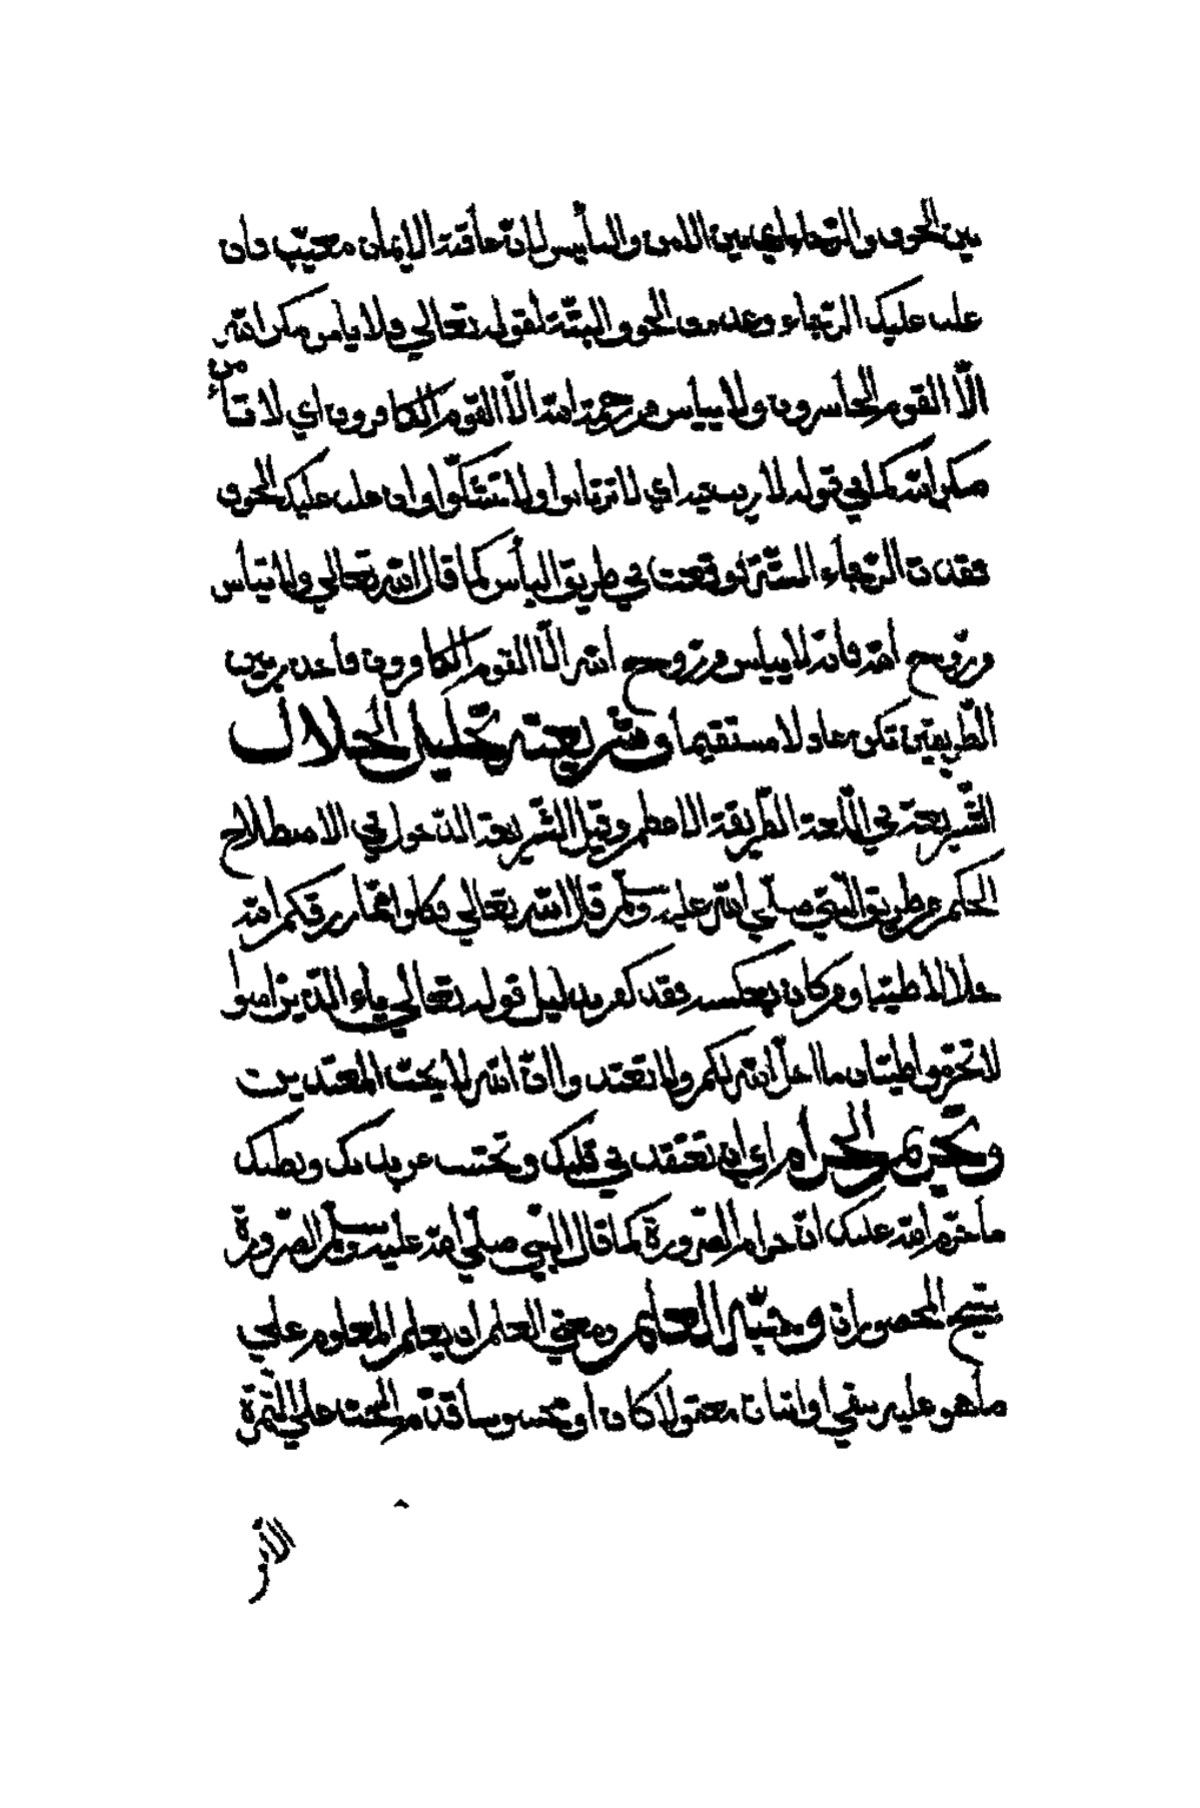 بين الخوف والرّجاء اي بين الامن واليأس لانّ عاقبة الايمان مغيّب فان
غلب عليك الرّجاء وعدمت الخوف البتّة لقوله تعالي فلا يامن مكر الله
الّا القوم الخاسرون ولا ييأس من رحمة الله الّا القوم الكافرون اي لا تأمن
مكر الله كما في قوله لا ريب فيه اي لا ترتابوا ولا تشكّوا وان غلب عليك الخوف
فقدت الرّجاء البتّة لوقعت في طريق اليأس كما قال الله تعالي ولا تيأس
من رّوح الله فانه لا ييأس من رّوح الله الّا القوم الكافرون فاحذر بين
الطّريقين تكن عادلا مستقيما وشريعته تحليل الحلال
الشّريعة في اللّغة الطّريقة الاعظم وقيل الشّريعة الدّخول في الاصطلاح
الحكم من طريق النّبي صلّي الله عليه وسلّم قال الله تعالي فكلوا ممّا رزقكم الله
حلالا طيّبا ومن كان بعكسه فقد كفر بدليل قوله تعالي ياء الّذين امنوا
لا تحرّموا طيّبات ما احلّ الله لكم ولا تعتدوا انّ الله لا يحبّ المعتدين
وتحريم الحرام اي ان تعتقد في قلبك وتجتنب عن يدك وبطنك
ما حرّم الله عليك انّه حرام الضّرورة كما قال النّبي صلّي الله عليه وسلّم الضّرورة
تبيح المحصورات و العلم ومعني العلم ان يعلم المعلوم علي
ما هو عليه بنفي او اثبات معقولا كان او محسوسا قدّم البحث علي الثمرة